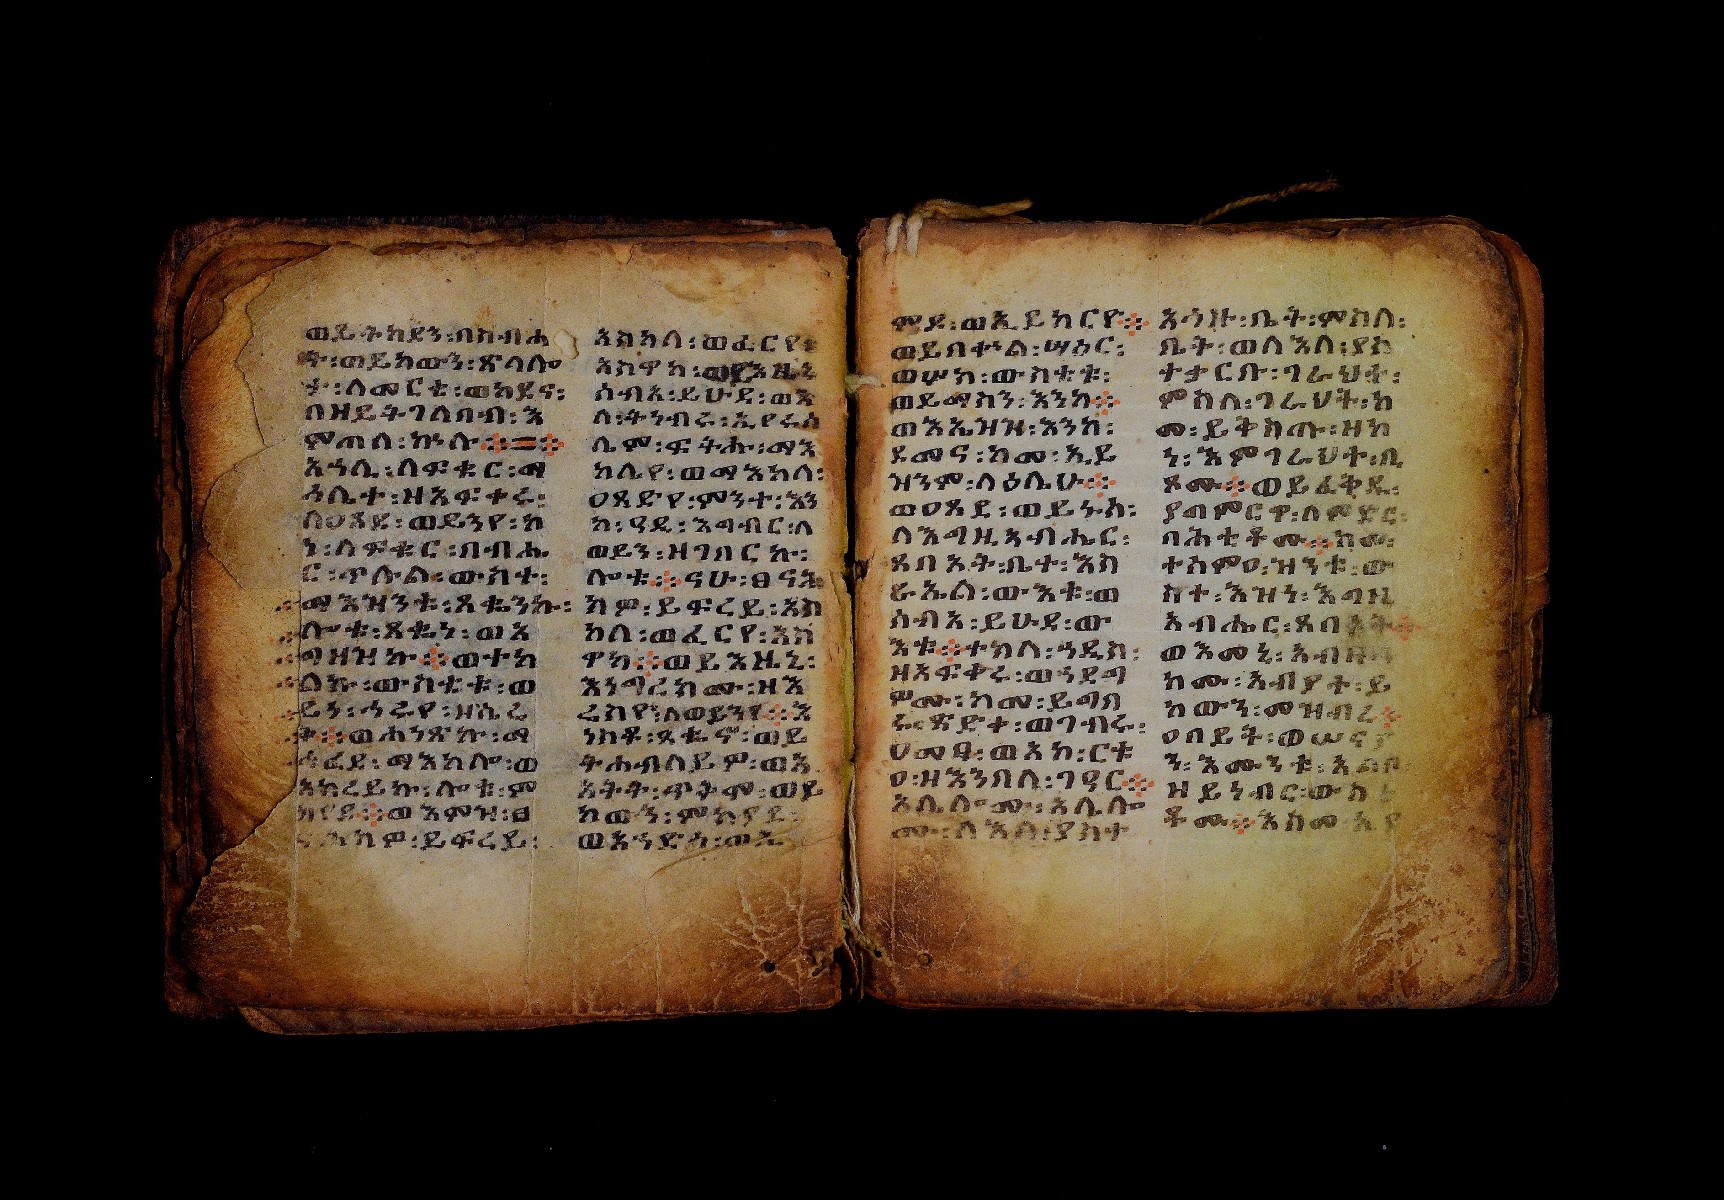 ወይትከደን፡በስብሐ
ት፡ወይከውን፡ጽላሎ
በዘይትገለበብ፡እ
ምጠል፡ኵሉ፨=፨
አኀሊ፡ለፍቁር፡ማ
ኅሌተ፡ዘአፍቀረ፡
ለዐጸደ፡ወይንየ፡ኮ
ነ፡ለፍቁር፡በብሔ
ር፡ጥሉል፡ውስተ፡
ማእዝንቱ፡ጸቈንኩ፡
ሎቱ፡ጸቈነ፡ወአ
ግዘዝኩ፨ወተከ
ልኩ፡ውስቴቱ፡ወ
ይነ፡ኅሩየ፡ዘሴሬ
ቅ፨ወሐነጽኩ፡ማ
ኅፈደ፡ማእከሎ፡ወ
አከረይኩ፡ሎቱ፡ም
ክየደ፨ወእምዝ፡ፀ
ናሕኩዎ፡ይፍረይ፡
አስካለ፡ወፈርየ፡
አስዋከ፡ወይእዜኒ
ሰብአ፡ይሁዳ፡ወእ
ለ፡ትነብሩ፡ኢየሩሳ
ሌም፡ፍትሑ፡ማእ
ከሌየ፡ወማእከለ፡
ዐጸድየ፡ምንተ፡እን
ከ፡ዓዲ፡እግብር፡ለ
ወይን፡ዘገበርኩ፡
ሎቱ፨ናሁ፡ፀናሕ
ክዎ፡ይፍረይ፡አስ
ካለ፡ወፈርየ፡አስ
ዋከ፨ወይእዜኒ፡
እነግረክሙ፡ዘእ
ሬስየ፡ለወይንየ፨እ
ነክቶ፡ጸቈኖ፡ወይ
ትሐብለይም፡ወእ
አትት፡ጥቅሞ፡ወይ
ከውን፡ምክያደ፡
ወእኀድጎ፡ወኢ
ምዶ፡ወኢይከርዮ፨
ወይበቍል፡ሣዕር፡
ወሦክ፡ውስቴቱ፡
ወይማስን፡እንከ፨
ወእኤዝዝ፡እንከ፡
ደመና፡ከመ፡ኢይ
ዝንም፡ላዕሌሁ፨
ወዐጸደ፡ወይኑሰ፡
ለእግዚአብሔር፡
ጸባኦት፡ቤተ፡እስ
ራኤል፡ውእቱ፡ወ
ሰብአ፡ይሁዳ፡ው
እቱ፨ተክል፡ሐዲስ፡
ዘአፍቀረ፡ወኀደግ
ዎሙ፡ከመ፡ይግበ
ሩ፡ጽድቀ፡ወገብሩ፡
ዐመፃ፡ወአኮ፡ርቱ
ዐ፡ዘእንበለ፡ገዓር፨
አሌ፡ሎሙ፡አሌ፡ሎ
ሙ፡ለእለ፡ያስተ
አኅዙ፡ቤተ፡ምስለ፡
ቤት፡ወለእለ፡ያስ
ተታርቡ፡ገራህተ፡
ምስለ፡ገራህት፡ከ
መ፡ይትቀጡ፡ዘከ
ነ፡እምገራህተ፡ቢ
ጾሙ፨ወይፈቅዱ፡
ያግምርዋ፡ለምድር፡
በሕቲቶሙ፨ከመ፡
ተሰምዐ፡ዝንቱ፡ው
ስተ፡እዝነ፡እግዚ
አብሔር፡ጸባኦት፨
ወእመኒ፡አብዝኁ
ከሙ፡አብያተ፡ይ
ከውን፡መዝብረ፨
ዐበይት፡ወሠናያ
ን፡እሙንቱ፡አልቦ
ዘይነብር፡ውስ
ቶሙ፨እስመ፡